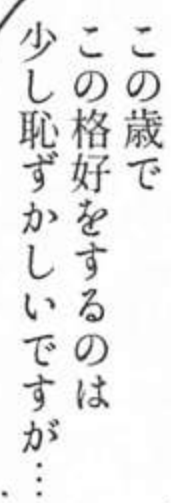 この歳で
この格好をするのは
少し恥ずかしいですが…